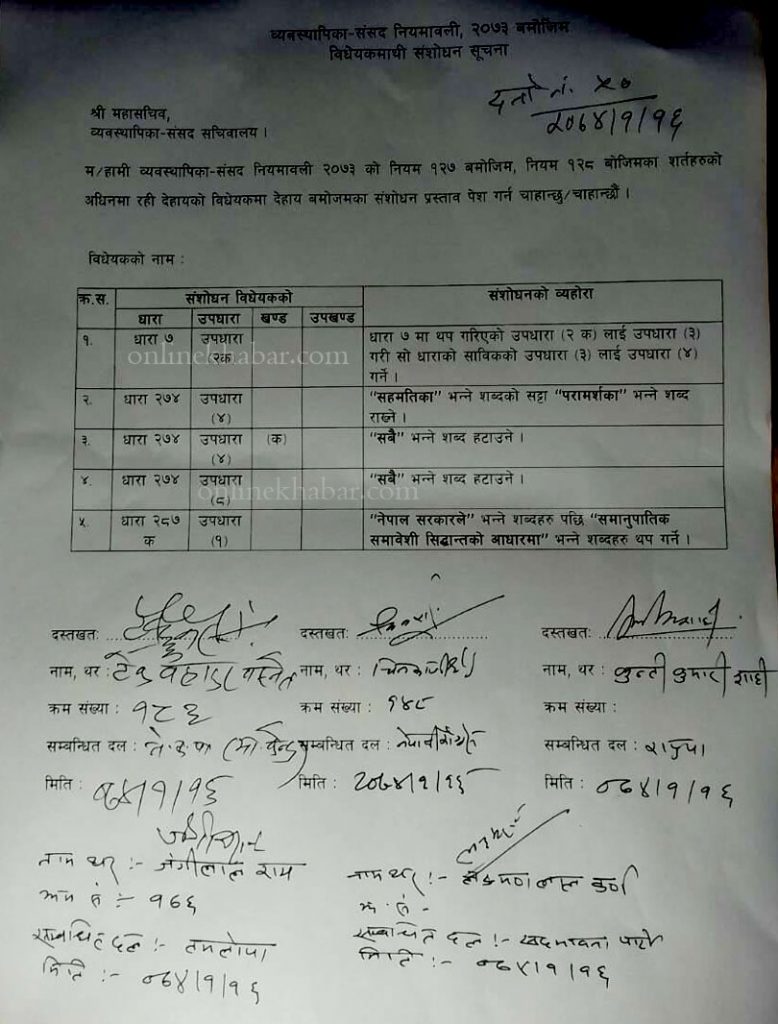 व्यवस्थापिका-संसद नियमावली, २०७३ बमोजिम
विधेयकमाथी संशोधन सूचना
दर्ता नं. ५०
२०७४/१/१६
श्री महासचिव,
व्यवस्थापिका-संसद सचिवालय ।
म/हामी व्यवस्थापिका-संसद नियमावली २०७३ को नियम १२७ बमोजिम, नियम १२८ बोजिमका शर्तहरुको
अधिनमा रही देहायको विधेयकमा देहाय बमोजमका संशोधन प्रस्ताव पेश गर्न चाहान्छु/चाहान्छौं ।
विधेयकको नाम :
क्र.स. संशोधन विधेयकको संशोधनको व्यहोरा
धारा उपधारा खण्ड उपखण्ड
१. धारा ७ उपधारा २क धारा ७ मा थप गरिएको उपधारा (२ क) लाई उपधारा (३)
गरी सो धाराको साविकको उपधारा (३) लाई उपधारा (४)
गर्ने ।
२. धारा २७४ उपधारा (४) "सहमतिका" भन्ने शब्दको सट्टा "परामर्शका" भन्ने शब्द
राख्ने ।
३. धारा २७४ उपधारा (४) (क) "सबै" भन्ने शब्द हटाउने ।
४. धारा २७४ उपधारा (८) "सबै" भन्ने शब्द हटाउने ।
५. धारा २८७ क उपधारा (१) "नेपाल सरकारले" भन्ने शब्दहरु पछि "समानुपातिक
समावेशी सिद्धान्तको आधारमा" भन्ने शब्दहरु थप गर्ने ।
onlinekhabar.com
onlinekhabar.com
दस्तखत: दस्तखत: दस्तखत:
नाम, थर : टेक बहादुर बस्नेत नाम, थर : नाम, थर : कुन्ती कुमारी शाही
क्रम संख्या : १८६ क्रम संख्या : १४८ क्रम संख्या :
सम्बन्धित दल : सम्बन्धित दल : सम्बन्धित दल : राप्रपा
मिति : ०७४/१/१६ मिति : २०७४/१/१६ मिति : ०७४/१/१६
नाम थर :- जंगीलाल राय
क्रम नं :- १७६
सम्बन्धित दल :- तमलोपा
मिति :- ०७४/१/१६
नाम थर :- लक्ष्मण लाल कर्ण
क्र. नं -
सम्बन्धित दल :- सदभावना पार्टी
मिति :- ०७४/१/१६